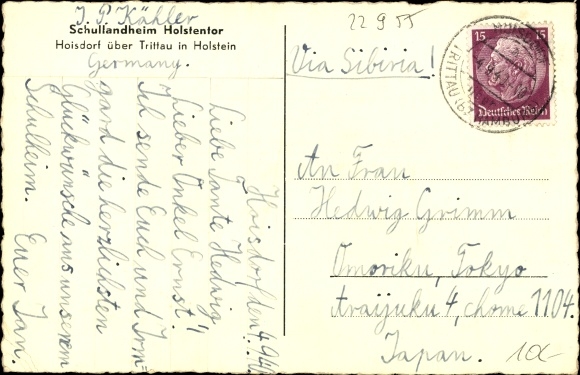 J. P. Kähler
Schullandheim Holstentor
Hoisdorf über Trittau in Holstein
Germany.
22 9 55
Via Sibiria!
15 15
Deutsches Reich
TRITTAU
Hoisdorf, den
Liebe Tante Hedwig
Lieber Onkel Ernst!
Ich sende Euch und Irm-
gard die herzlichsten
Glückwünsche aus unserem
Schulheim. Euer Jan.
An Frau
Hedwig Grimm
Omoriku, Tokyo
Araijuku 4, chome 1104.
Japan.
10.-